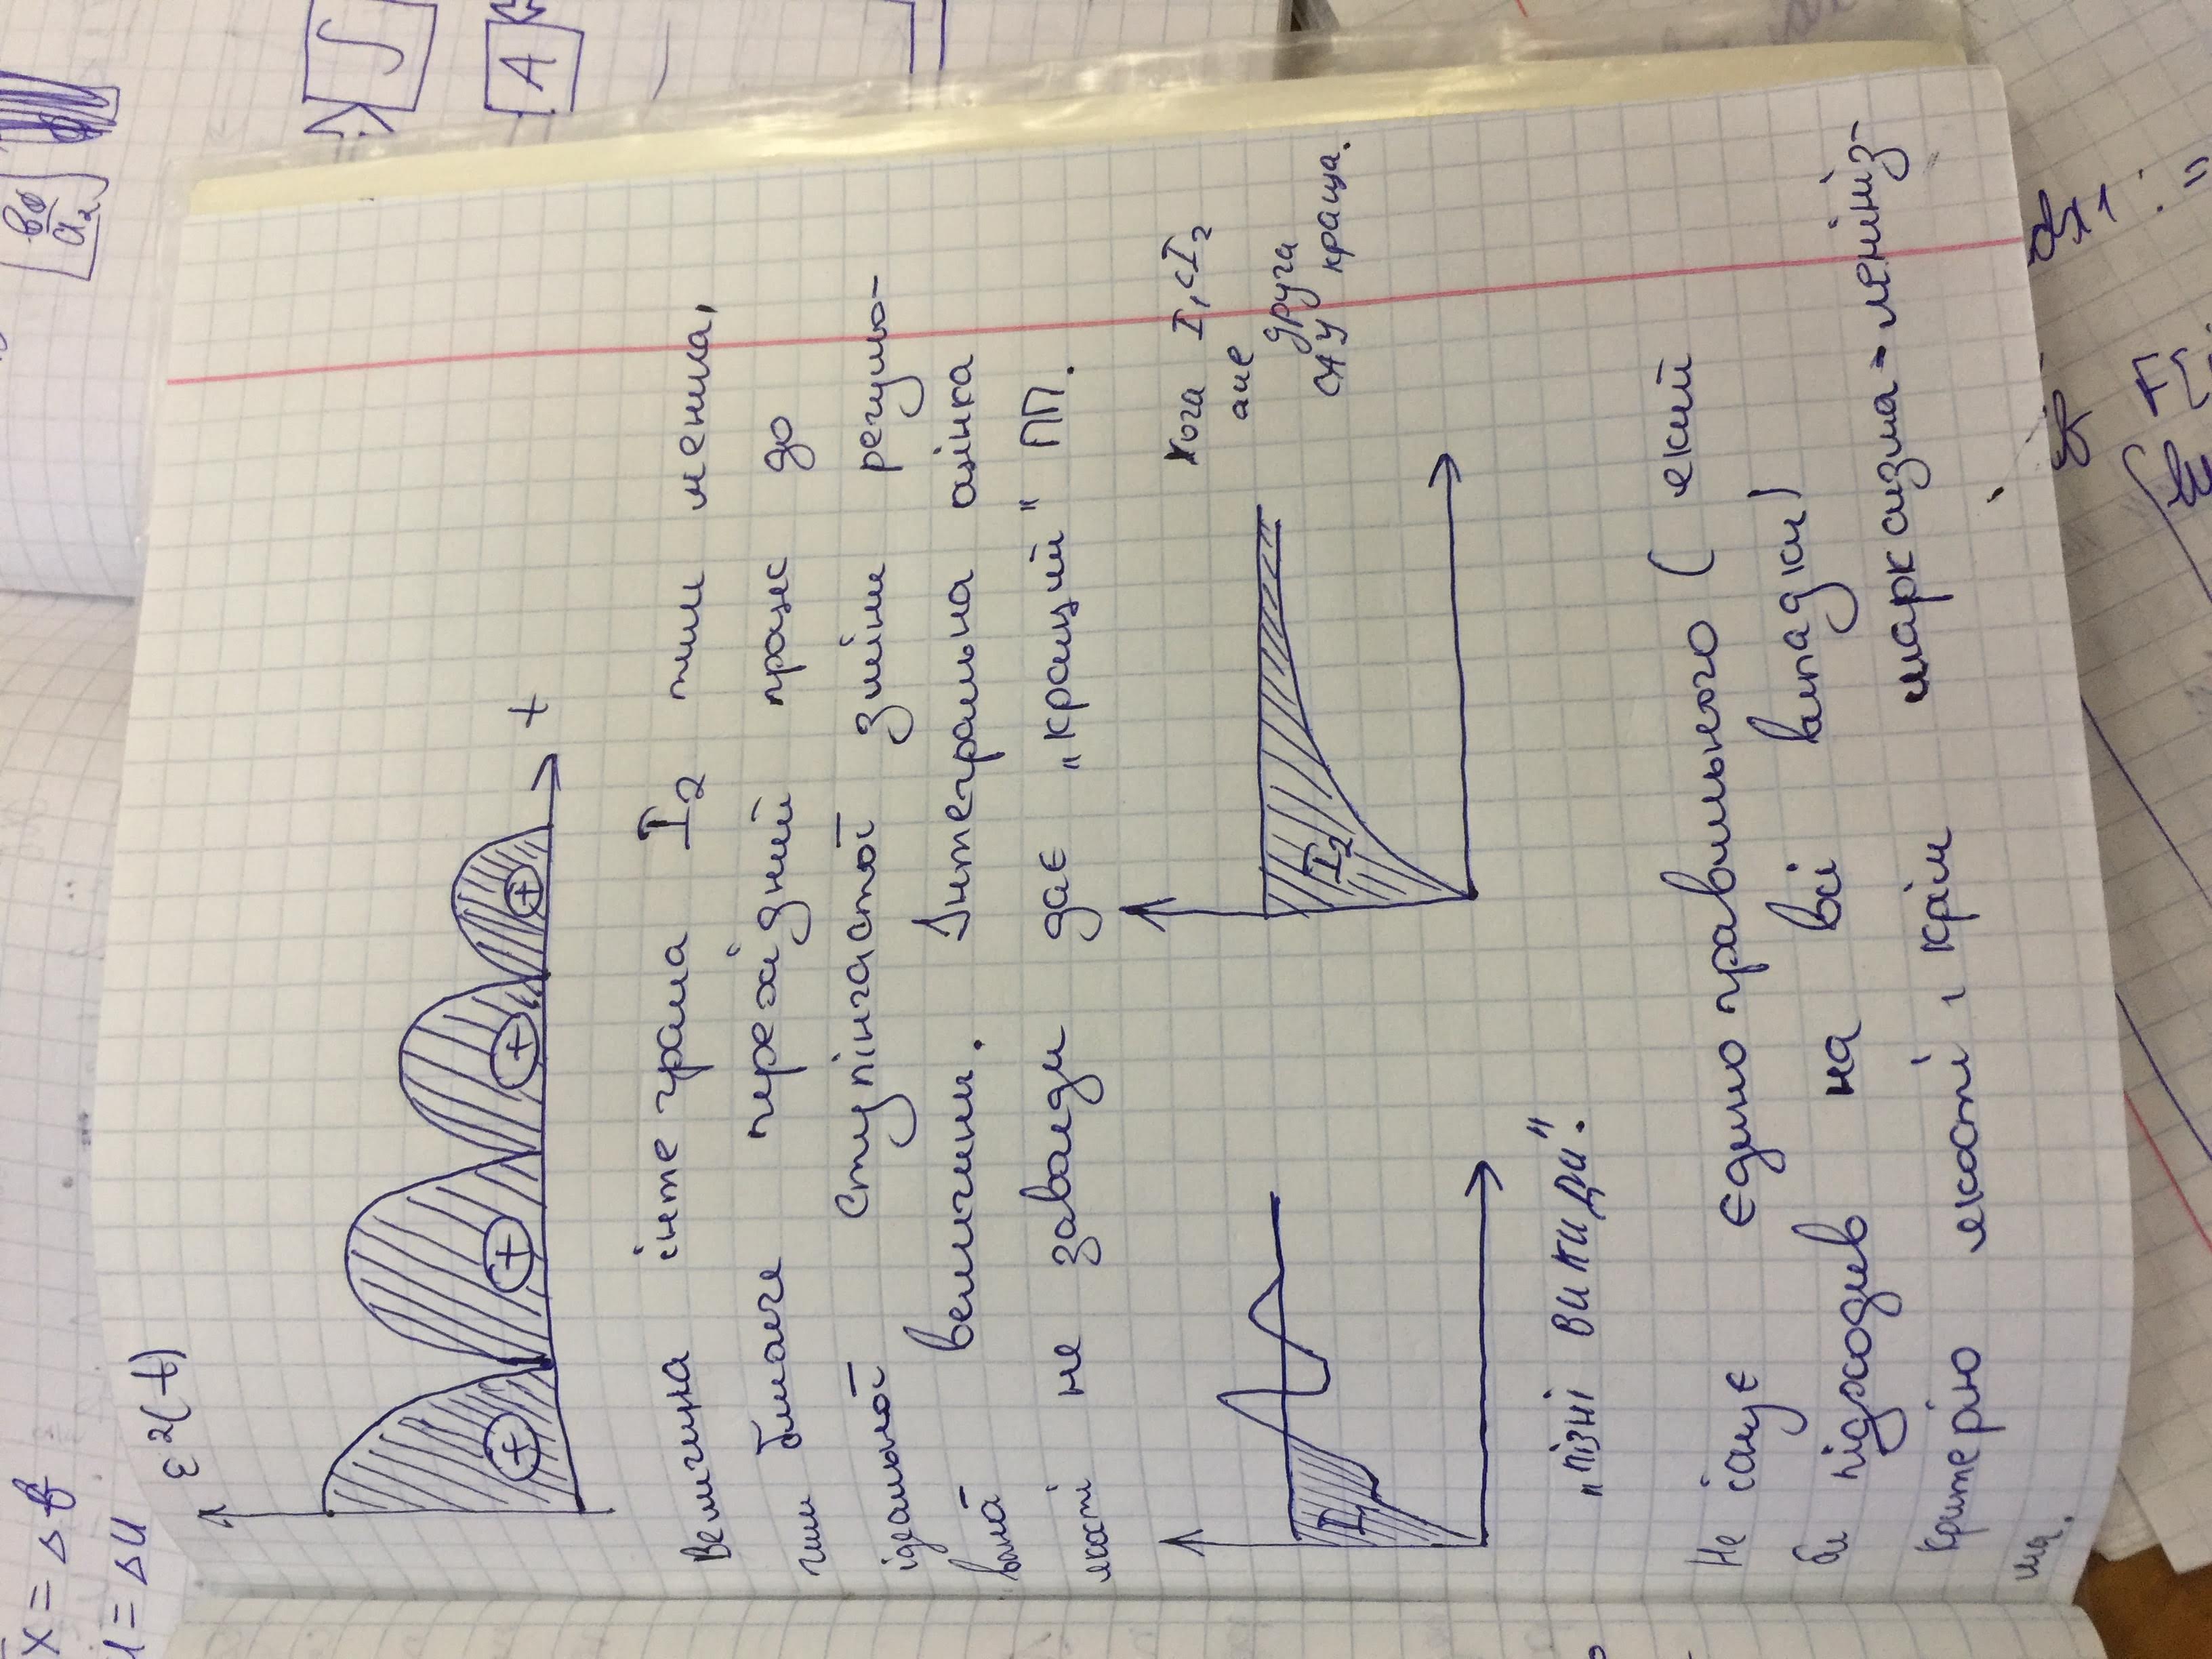 x = Δb
u = Δu
b0
a2
∫
A
ε²(t)
+ + + +
t
Величина інтеграла I2 тим менша,
чим ближче перехідний процес до
ідеальної ступінчастої зміни регульо-
ваної величини. Інтегральна оцінка
якості не завжди дає „кращий" ПП.
I1
I2
Хоча I1<I2
але
друга
САУ краща.
„пізні викиди".
Не існує єдино правильного ( який
би підходив на всі випадки)
критерію якості, крім марксизма-ленініз-
ма.
dx1